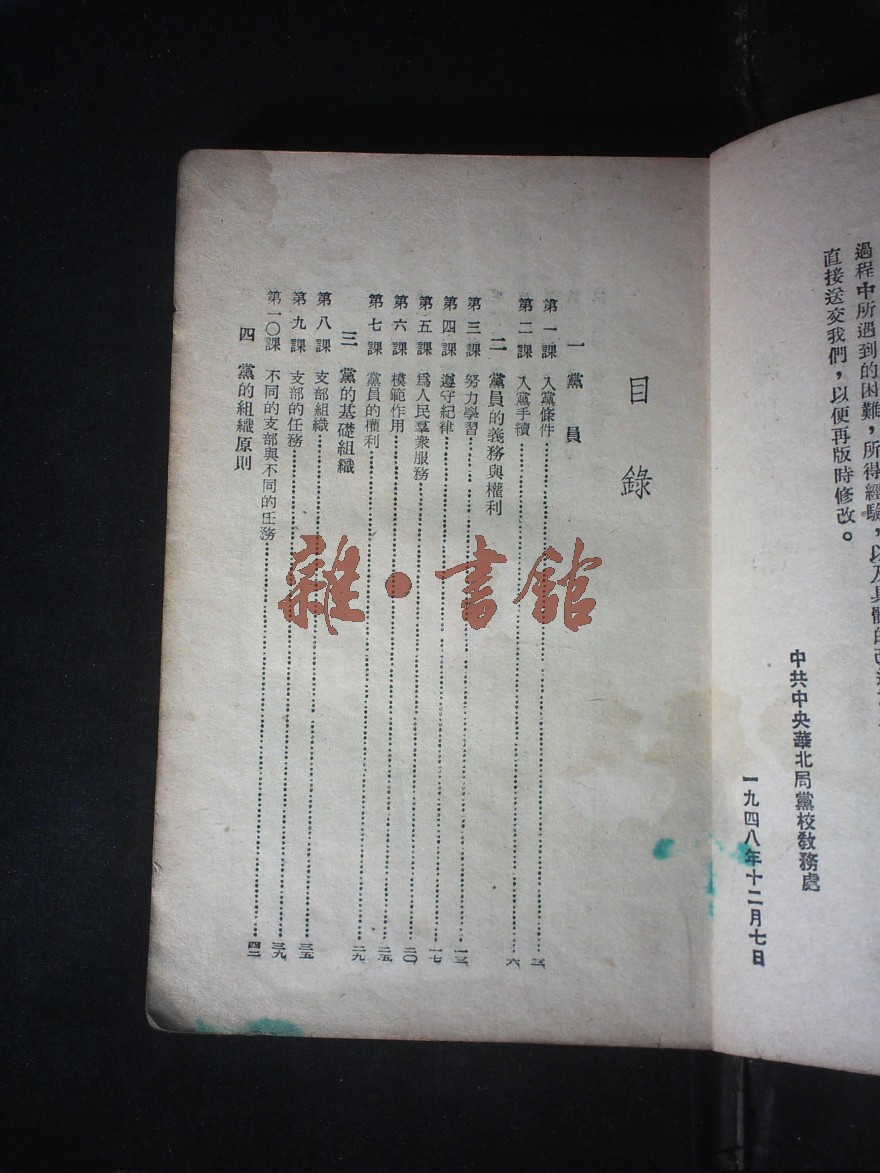 過程中所遇到的困難，所得經驗，以及具體的
直接送交我們，以便再版時修改。
中共中央華北局黨校教務處
一九四八年十二月七日
目錄
一 黨員
第一課 入黨條件 三
第二課 入黨手續 六
二 黨員的義務與權利
第三課 努力學習 一三
第四課 遵守紀律 一七
第五課 爲人民羣衆服務 二〇
第六課 模範作用 二五
第七課 黨員的權利 二九
三 黨的基礎組織
第八課 支部組織 三五
第九課 支部的任務 三九
第一〇課 不同的支部與不同的任務 四二
四 黨的組織原則
雜·書館